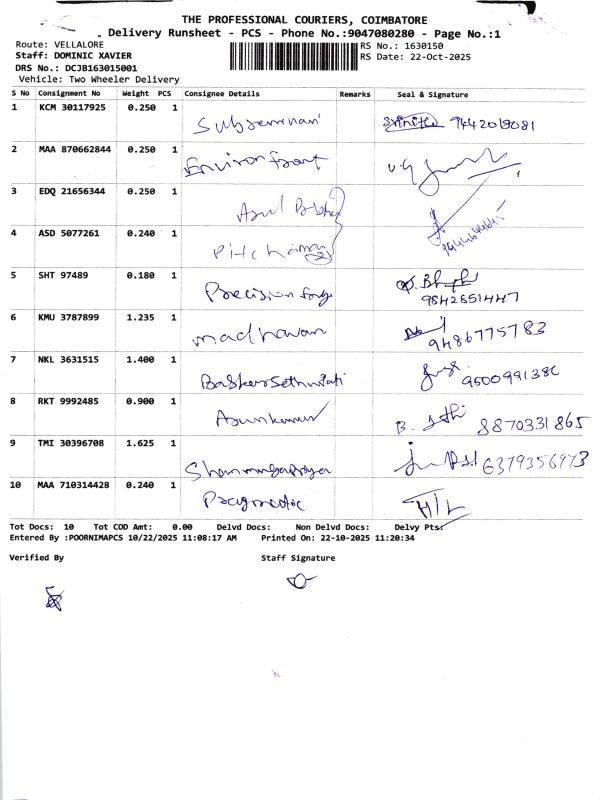 THE PROFESSIONAL COURIERS, COIMBATORE
Delivery Runsheet - PCS - Phone No.:9047080280 - Page No.:1
Route: VELLALORE RS No.: 1630150
Staff: DOMINIC XAVIER RS Date: 22-Oct-2025
DRS No.: DCJB163015001
Vehicle: Two Wheeler Delivery
S No Consignment No Weight PCS Consignee Details Remarks Seal & Signature
1 KCM 30117925 0.250 1 9442018081
2 MAA 870662844 0.250 1 Environ front
3 EDQ 21656344 0.250 1
4 ASD 5077261 0.240 1
5 SHT 97489 0.180 1 Precision forge 9842651447
6 KMU 3787899 1.235 1 madhavan 9486775783
7 NKL 3631515 1.400 1
8 RKT 9992485 0.900 1 Arunkumar 8870331865
9 TMI 30396708 1.625 1 6379356973
10 MAA 710314428 0.240 1 H/L
Tot Docs: 10 Tot COD Amt: 0.00 Delvd Docs: Non Delvd Docs: Delvy Pts:
Entered By :POORNIMAPCS 10/22/2025 11:08:17 AM Printed On: 22-10-2025 11:20:34
Verified By Staff Signature